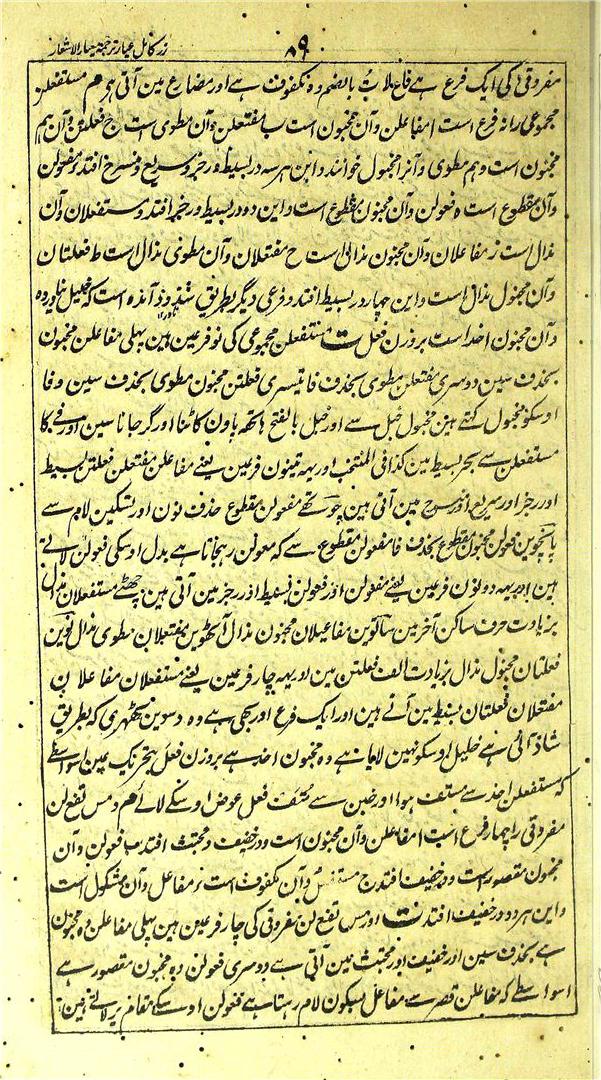 زر کامل عیار ترجمہ معیار الاشعار
۸۹
مفروقی کی ایک فرع ہے فاع لات بالضم وہ مکفوف ہے اور مضارع مین آتی ہے م مستفعلن
مجموعی را نہ فرع است ا مفاعلن وآن مخبون است ب مفتعلن وآن مطوی است ج فعلتن وآن ہم
مخبون است وہم مطوی وآنرا مخبول خوانند واین ہر سہ در بسیط و رجز و سریع و منسرح افتد و مفعولن
وآن مقطوع است ہ فعولن وآن مخبون مقطوع است واین دو در بسیط ورجز افتد و مستفعلان وآن
مذال است ز مفاعلان وآن مخبون مذال است ح مفتعلان وآن مطوی مذال است ط فعلتان
وآن مخبول مذال است واین چہار در بسیط افتد و فرعی دیگر بطریق شذوذ آمدہ است کہ خلیل نیاوردہ
وآن مخبون احذ است بروزن فعل ت مستفعلن مجموعی کی نو فرعین ہین پہلی مفاعلن مخبون
بحذف سین دوسری مفتعلن مطوی بحذف فا تیسری فعلتن مخبون مطوی بحذف سین و فا
اوسکو مخبول کہتے ہین مخبول خبل سے اور خبل بالفتح ہاتھ پاون کاٹنا اور گر جانا سین اور فے کا
مستفعلن سے بحر بسیط مین کذا فی المنتخب اور یہہ تینون فرعین یعنے مفاعلن مفتعلن فعلتن بسیط
اور رجز اور سریع اور منسرح مین آتی ہین چوتھے مفعولن مقطوع حذف نون اور تسکین لام سے
پانچوین فعولن مخبون مقطوع بحذف فا مفعولن مقطوع سے کہ معولن رہجاتا ہے بدل اوسکی فعولن لاتے
ہین اور یہہ دونون فرعین یعنے مفعولن اور فعولن بسیط اور رجز مین آتی ہین چھٹے مستفعلان مذال
بزیادت حرف ساکن آخر مین ساتوین مفاعلان مخبون مذال آٹھوین مفتعلان مطوی مذال نوین
فعلتان مخبول مذال بزیادت الف فعلتن مین اور یہہ چار فرعین یعنے مستفعلان مفاعلان
مفتعلان فعلتان بسیط مین آتے ہین اور ایک فرع اور بھی ہے وہ دسوین ٹھہری کہ بطریق
شاذ آئی ہے خلیل اوسکو نہین لایا ہے وہ مخبون احذ ہے بروزن فعل بتحریک عین اسواسطے
کہ مستفعلن احذ سے مستف ہوا اور خبن سے متف فعل عوض اوسکے لائے م و مس تفع لن
مفروقی را چہار فرع است ا مفاعلن وآن مخبون است و در خفیف و مجتث افتد ب فعولن وآن
مخبون مقصور است و در خفیف افتد ج مستفعل وآن مکفوف است ز مفاعل وآن مشکول است
واین ہر دو در خفیف افتد ت اور مس تفع لن مفروقی کی چار فرعین ہین پہلی مفاعلن وہ مخبون
ہے بحذف سین اور خفیف اور مجتث مین آتی ہے دوسری فعولن وہ مخبون مقصور ہے
اسواسطے کہ مفاعلن قصر سے مفاعل بسکون لام رہتا ہے فعولن اوسکے مقام پر لاتے ہین